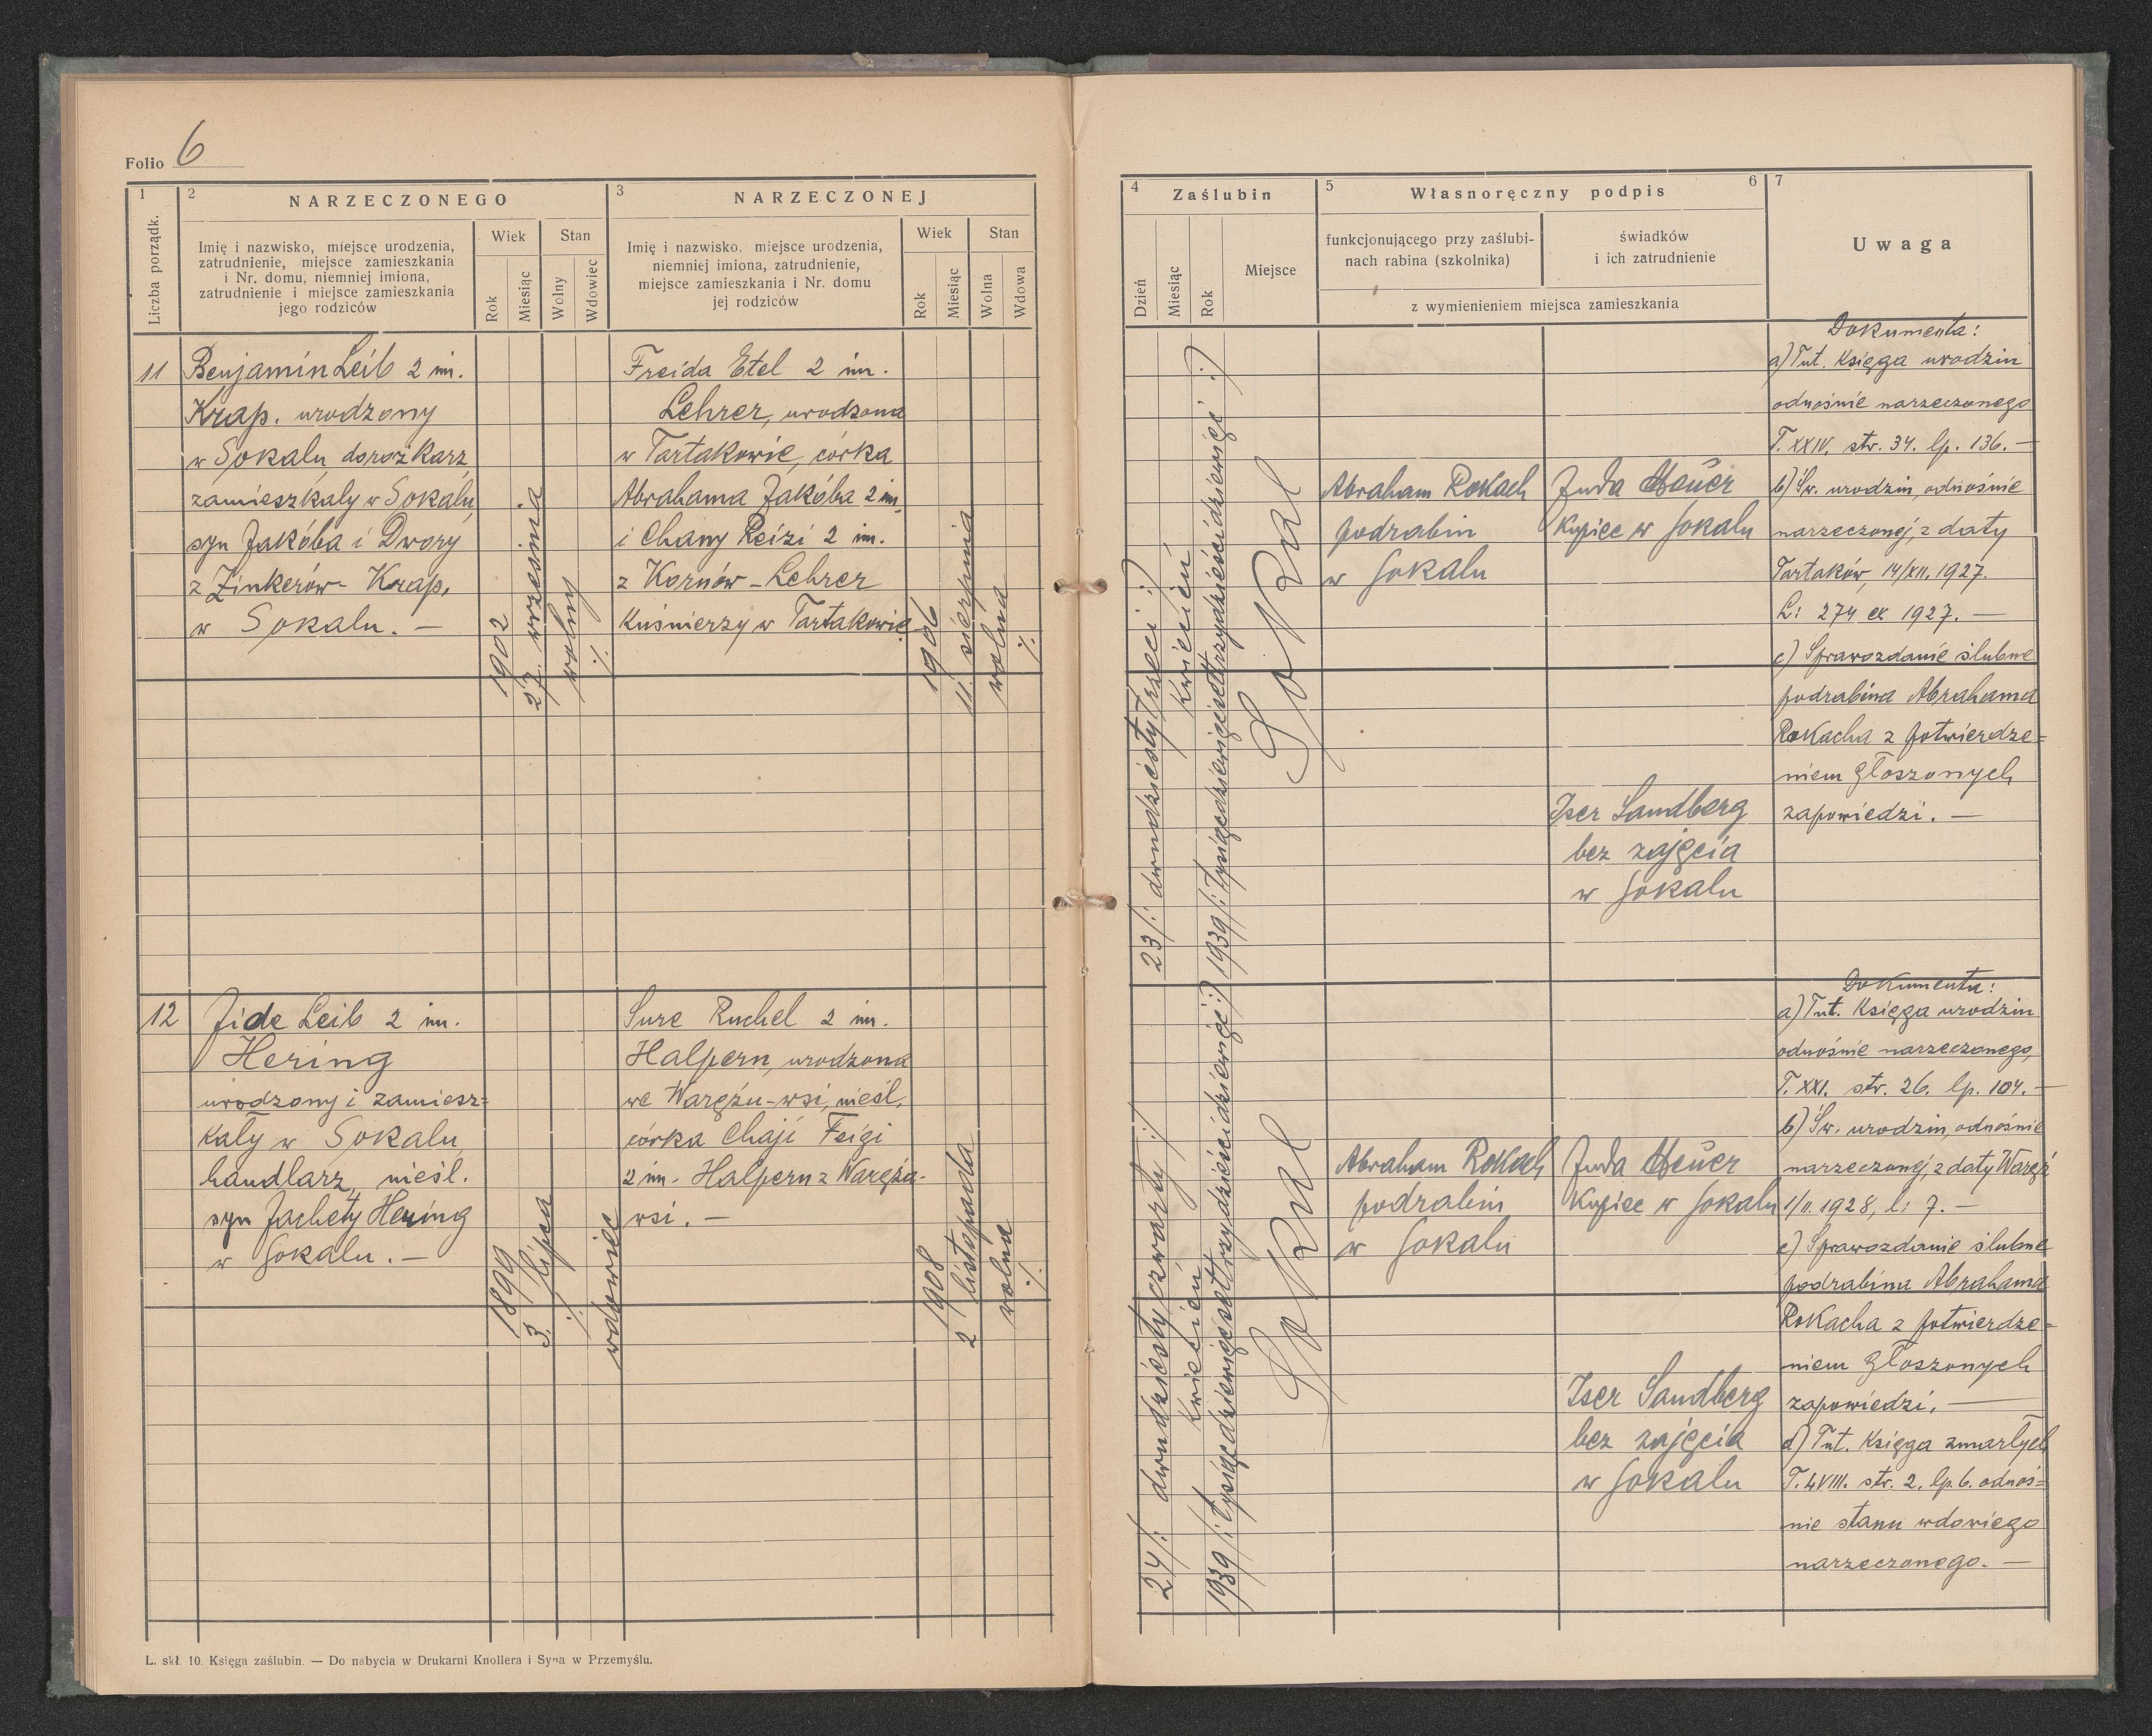 Folio 6
1
Liczba porządk.
2
NARZECZONEGO
Imię i nazwisko, miejsce urodzenia,
zatrudnienie, miejsce zamieszkania
i Nr. domu, niemniej imiona,
zatrudnienie i miejsce zamieszkania
jego rodziców
Wiek
Rok
Miesiąc
Stan
Wolny
Wdowiec
3
NARZECZONEJ
Imię i nazwisko, miejsce urodzenia,
niemniej imiona, zatrudnienie,
miejsce zamieszkania i Nr. domu
jej rodziców
Wiek
Rok
Miesiąc
Stan
Wolna
Wdowa
11
Benjamin Leib 2 im.
Krap. urodzony
w Sokalu, dorożkarz
zamieszkały w Sokalu,
syn Jakóba i Dwory
z Zinkerów - Krap,
w Sokalu. —
1902
27. września
wolny
./.
Freida Etel 2 im.
Lehrer, urodzona
w Tartakowie, córka
Abrahama Jakóba 2 im.
i Chany Reizi 2 im.
z Kornów - Lehrer
Kuśnierzy w Tartakowie
1906
11. sierpnia
wolna
./.
12
Jide Leib 2 im.
Hering
urodzony i zamiesz=
kały w Sokalu,
handlarz, nieśl.
syn Jachety Hering
w Sokalu. —
1899
3. lipca
./.
wdowiec
Sure Ruchel 2 im.
Halpern, urodzona
we Warężu-wsi, nieśl.
córka Chaji Feigi
2 im. Halpern z Waręża-
wsi. —
1908
2 listopada
wolna
./.
L. skł. 10. Księga zaślubin. — Do nabycia w Drukarni Knollera i Syna w Przemyślu.
4
Zaślubin
Dzień
Miesiąc
Rok
Miejsce
5
Własnoręczny podpis
6
funkcjonującego przy zaślubi-
nach rabina (szkolnika)
świadków
i ich zatrudnienie
z wymienieniem miejsca zamieszkania
7
Uwaga
23 /: dwudziesty trzeci :/
Kwiecień
1939 /: tysiącdziewięćsettrzydzieścidziewięć :/
Sokal
Abraham Rokach
podrabin
w Sokalu
Juda Heuer
Kupiec w Sokalu
Iser Sandberg
bez zajęcia
w Sokalu
Dokumenta:
a) Tut. Księga urodzin
odnośnie narzeczonego
T. XXIV. str. 34. lp. 136. —
b) Św. urodzin, odnośnie
narzeczonej, z daty
Tartaków, 14/XII. 1927.
L: 274 ex 1927. —
c) Sprawozdanie ślubne
podrabina Abrahama
Rokacha z potwierdze=
niem głoszonych
zapowiedzi. —
24 /: dwudziesty czwarty :/
Kwiecień
1939 /: tysiącdziewięćsettrzydzieścidziewięć :/
Sokal
Abraham Rokach
podrabin
w Sokalu
Juda Heuer
Kupiec w Sokalu
Iser Sandberg
bez zajęcia
w Sokalu
Dokumenta:
a) Tut. Księga urodzin
odnośnie narzeczonego,
T. XXI. str. 26. lp. 104. —
b) Św. urodzin, odnośnie
narzeczonej, z daty Waręż
1/II. 1928, l: 7. —
c) Sprawozdanie ślubne
podrabina Abrahama
Rokacha z potwierdze=
niem głoszonych
zapowiedzi. —
d) Tut. Księga zmarłych
T. LVIII. str. 2. lp. 6. odnoś=
nie stanu wdowiego
narzeczonego. —